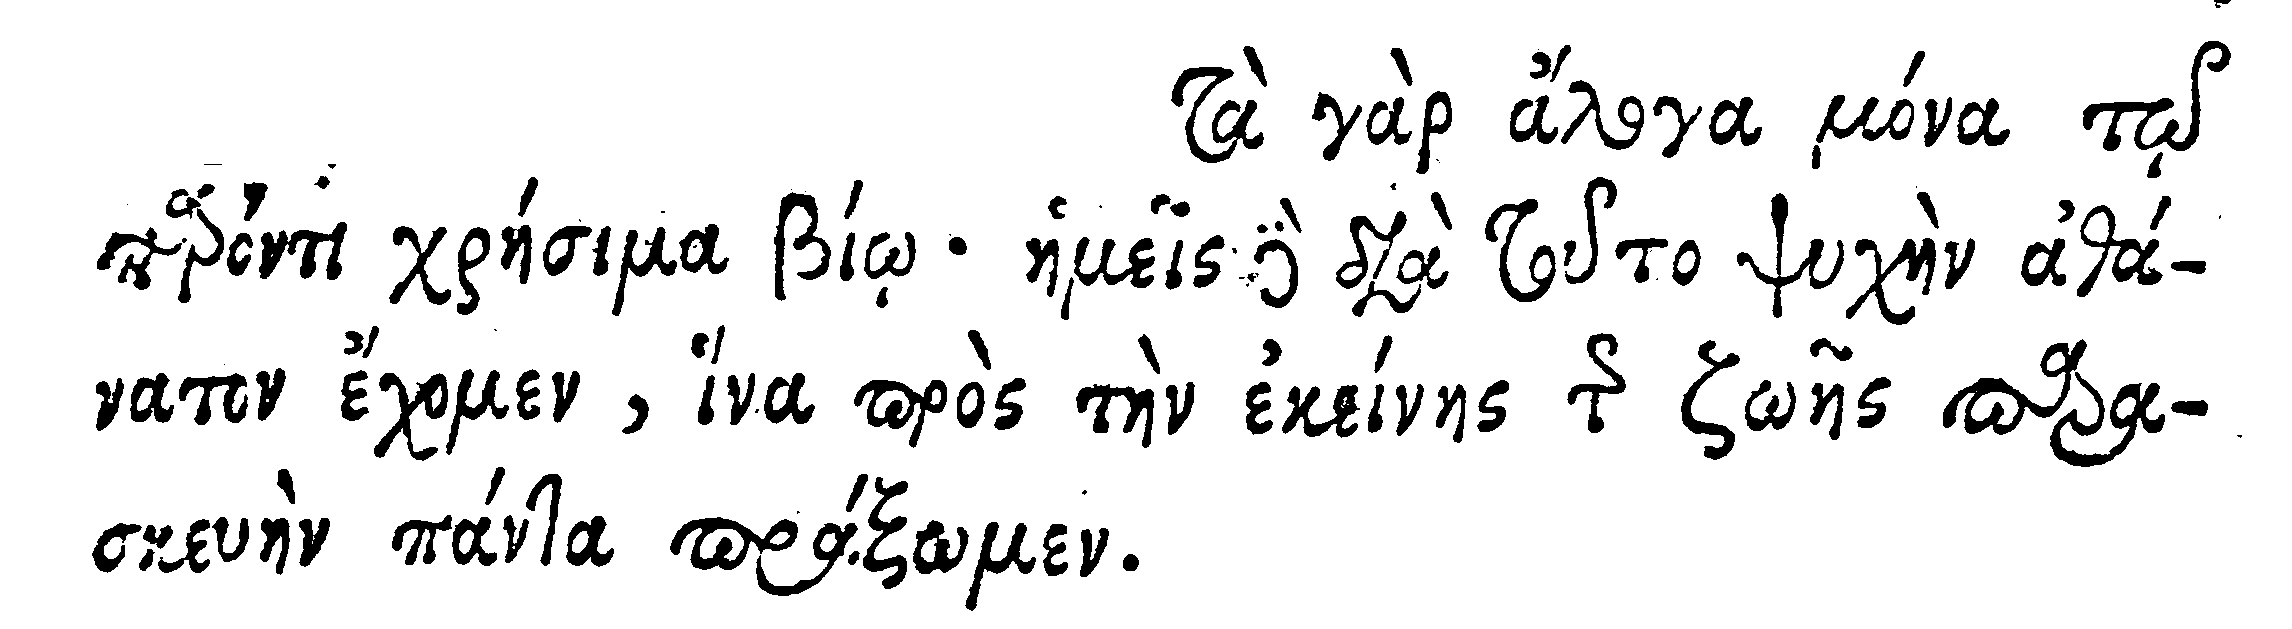 Τὰ γὰρ ἄλογα μόνα τῷ
παρόντι χρήσιμα βίῳ· ἡμεῖς δὲ διὰ τοῦτο ψυχὴν ἀθά-
νατον ἔχομεν, ἵνα πρὸς τὴν ἐκείνης τῆς ζωῆς παρα-
σκευὴν πάντα πράξωμεν.